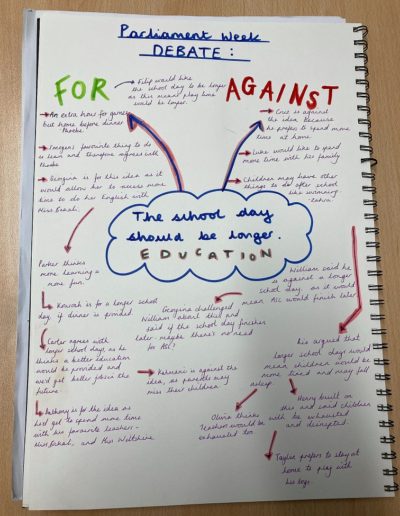 Parliament Week
DEBATE :
FOR
AGAINST
→ Filip would like
the school day to be longer
as this means play time
would be longer.
→ An extra hour for games
but home before dinner -
Phoebe.
→ Imogens favourite thing to do
is learn and therefore agrees with
Phoebe.
→ Georgina is for this idea as it
would allow her to receive more
time to do her English with
Miss
→ is against
the idea because
he prefers to spend more
time at home.
→ Luke would like to spend
more time with his family
→ Children may have other
things to do after school
like swimming
The school day
should be longer.
EDUCATION
Parker thinks
more learning is
more fun.
→ Hannah is for a longer school
day, if dinner is provided
Carter agrees with
longer school days, as he
thinks a better education
would be provided and
we'd get better jobs in the
future
Anthony is for the idea as
he'd get to spend more time
with his favourite teachers -
and Miss Wiltshire.
Georgina challenged
William about this and
said if the school day finishes
later - maybe there's no need
for ASC!
William said he
is against a longer
school day, as it would
mean ASC would finish later
→ is against the
idea, as parents may
miss their children
argued that
longer school days would
mean children would be
more tired and may fall
asleep.
Henry built on
this and said children
will be exhausted
and
Olivia thinks
teachers would be
exhausted too
Taylor prefers to stay at
home to play with
his toys.